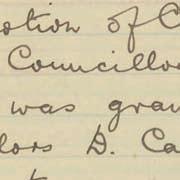 otion of C
Councillo
was gran
lors D. Ca